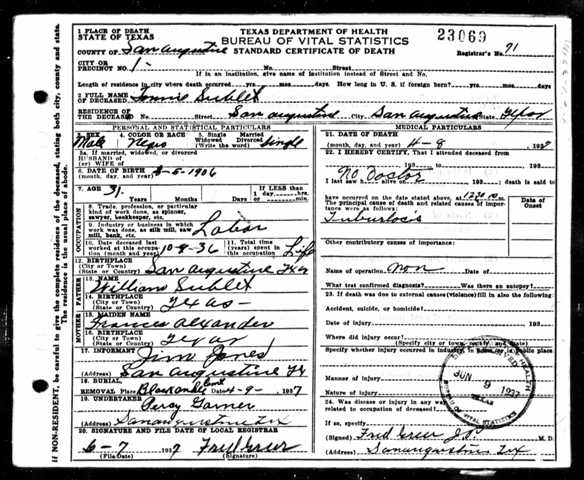 TEXAS DEPARTMENT OF HEALTH
BUREAU OF VITAL STATISTICS
STANDARD CERTIFICATE OF DEATH
23069
Registrar's No. 71
1 PLACE OF DEATH
STATE OF TEXAS
COUNTY OF San Augustine
CITY OR
PRECINCT NO. 1- No. Street
If in an institution, give name of institution instead of Street and No.
Length of residence in city where death occurred yrs. mos. days. How long in U. S. if foreign born? yrs. mos. days
2 FULL NAME
OF DECEASED Lonnie Sublet
RESIDENCE OF
THE DECEASED No. Street San Augustine City San Augustine State Texas
PERSONAL AND STATISTICAL PARTICULARS
3. SEX Male 4. COLOR OR RACE Negro 5. Single Married Widowed Divorced (Write the word) Single
5a. If married, widowed, or divorced
HUSBAND OF
(or) WIFE OF
6. DATE OF BIRTH
(month, day, year) -5-1906
7. AGE 31 Years Months Days If LESS than 1 day, hrs. or min.
OCCUPATION
8. Trade, profession, or particular
kind of work done, as spinner,
sawyer, bookkeeper, etc.
9. Industry or business in which
work was done, as silk mill, saw
mill, bank, etc. Labor
10. Date deceased last
worked at this occupation
(month and year) 10-8-36
11. Total time (years) spent in this occupation Life
12. BIRTHPLACE
(City or Town)
(State or Country) San Augustine Tex
FATHER
13. NAME William Sublet
14. BIRTHPLACE
(City or Town)
(State or Country) Texas
MOTHER
15. MAIDEN NAME Frances Alexander
16. BIRTHPLACE
(City or Town)
(State or Country) Texas
17. INFORMANT Jim Jones
(Address) San Augustine Tx
18. BURIAL,
REMOVAL Place Date 4-9- 1937
19. UNDERTAKER Percy Garner
(Address) San Augustine Tex
20. SIGNATURE AND FILE DATE OF LOCAL REGISTRAR
6-7 1937 Fred Greer
(File Date) (Signature)
MEDICAL PARTICULARS
21. DATE OF DEATH
(month, day, and year) 4-8 1937
22. I HEREBY CERTIFY, That I attended deceased from
193 to 193
I last saw h alive on 193 , death is said to
No Doctor
have occurred on the date stated above, at 1230 m.
The principal cause of death and related causes of importance were as follows: Date of Onset
Tuburlocis
Other contributory causes of importance:
Name of operation non Date of
What test confirmed diagnosis? Was there an autopsy?
23. If death was due to external causes (violence) fill in also the following
Accident, suicide, or homicide?
Date of injury 193
Where did injury occur?
(Specify city or town, county and State)
Specify whether injury occurred in industry, in home, or in public place
Manner of injury
Nature of injury
24. Was disease or injury in any way
related to occupation of deceased?
(Signed) Fred Greer J.P. M. D.
(Address) San Augustine Tex
JUN 9 1937
TEXAS
BUREAU OF VITAL STATISTICS